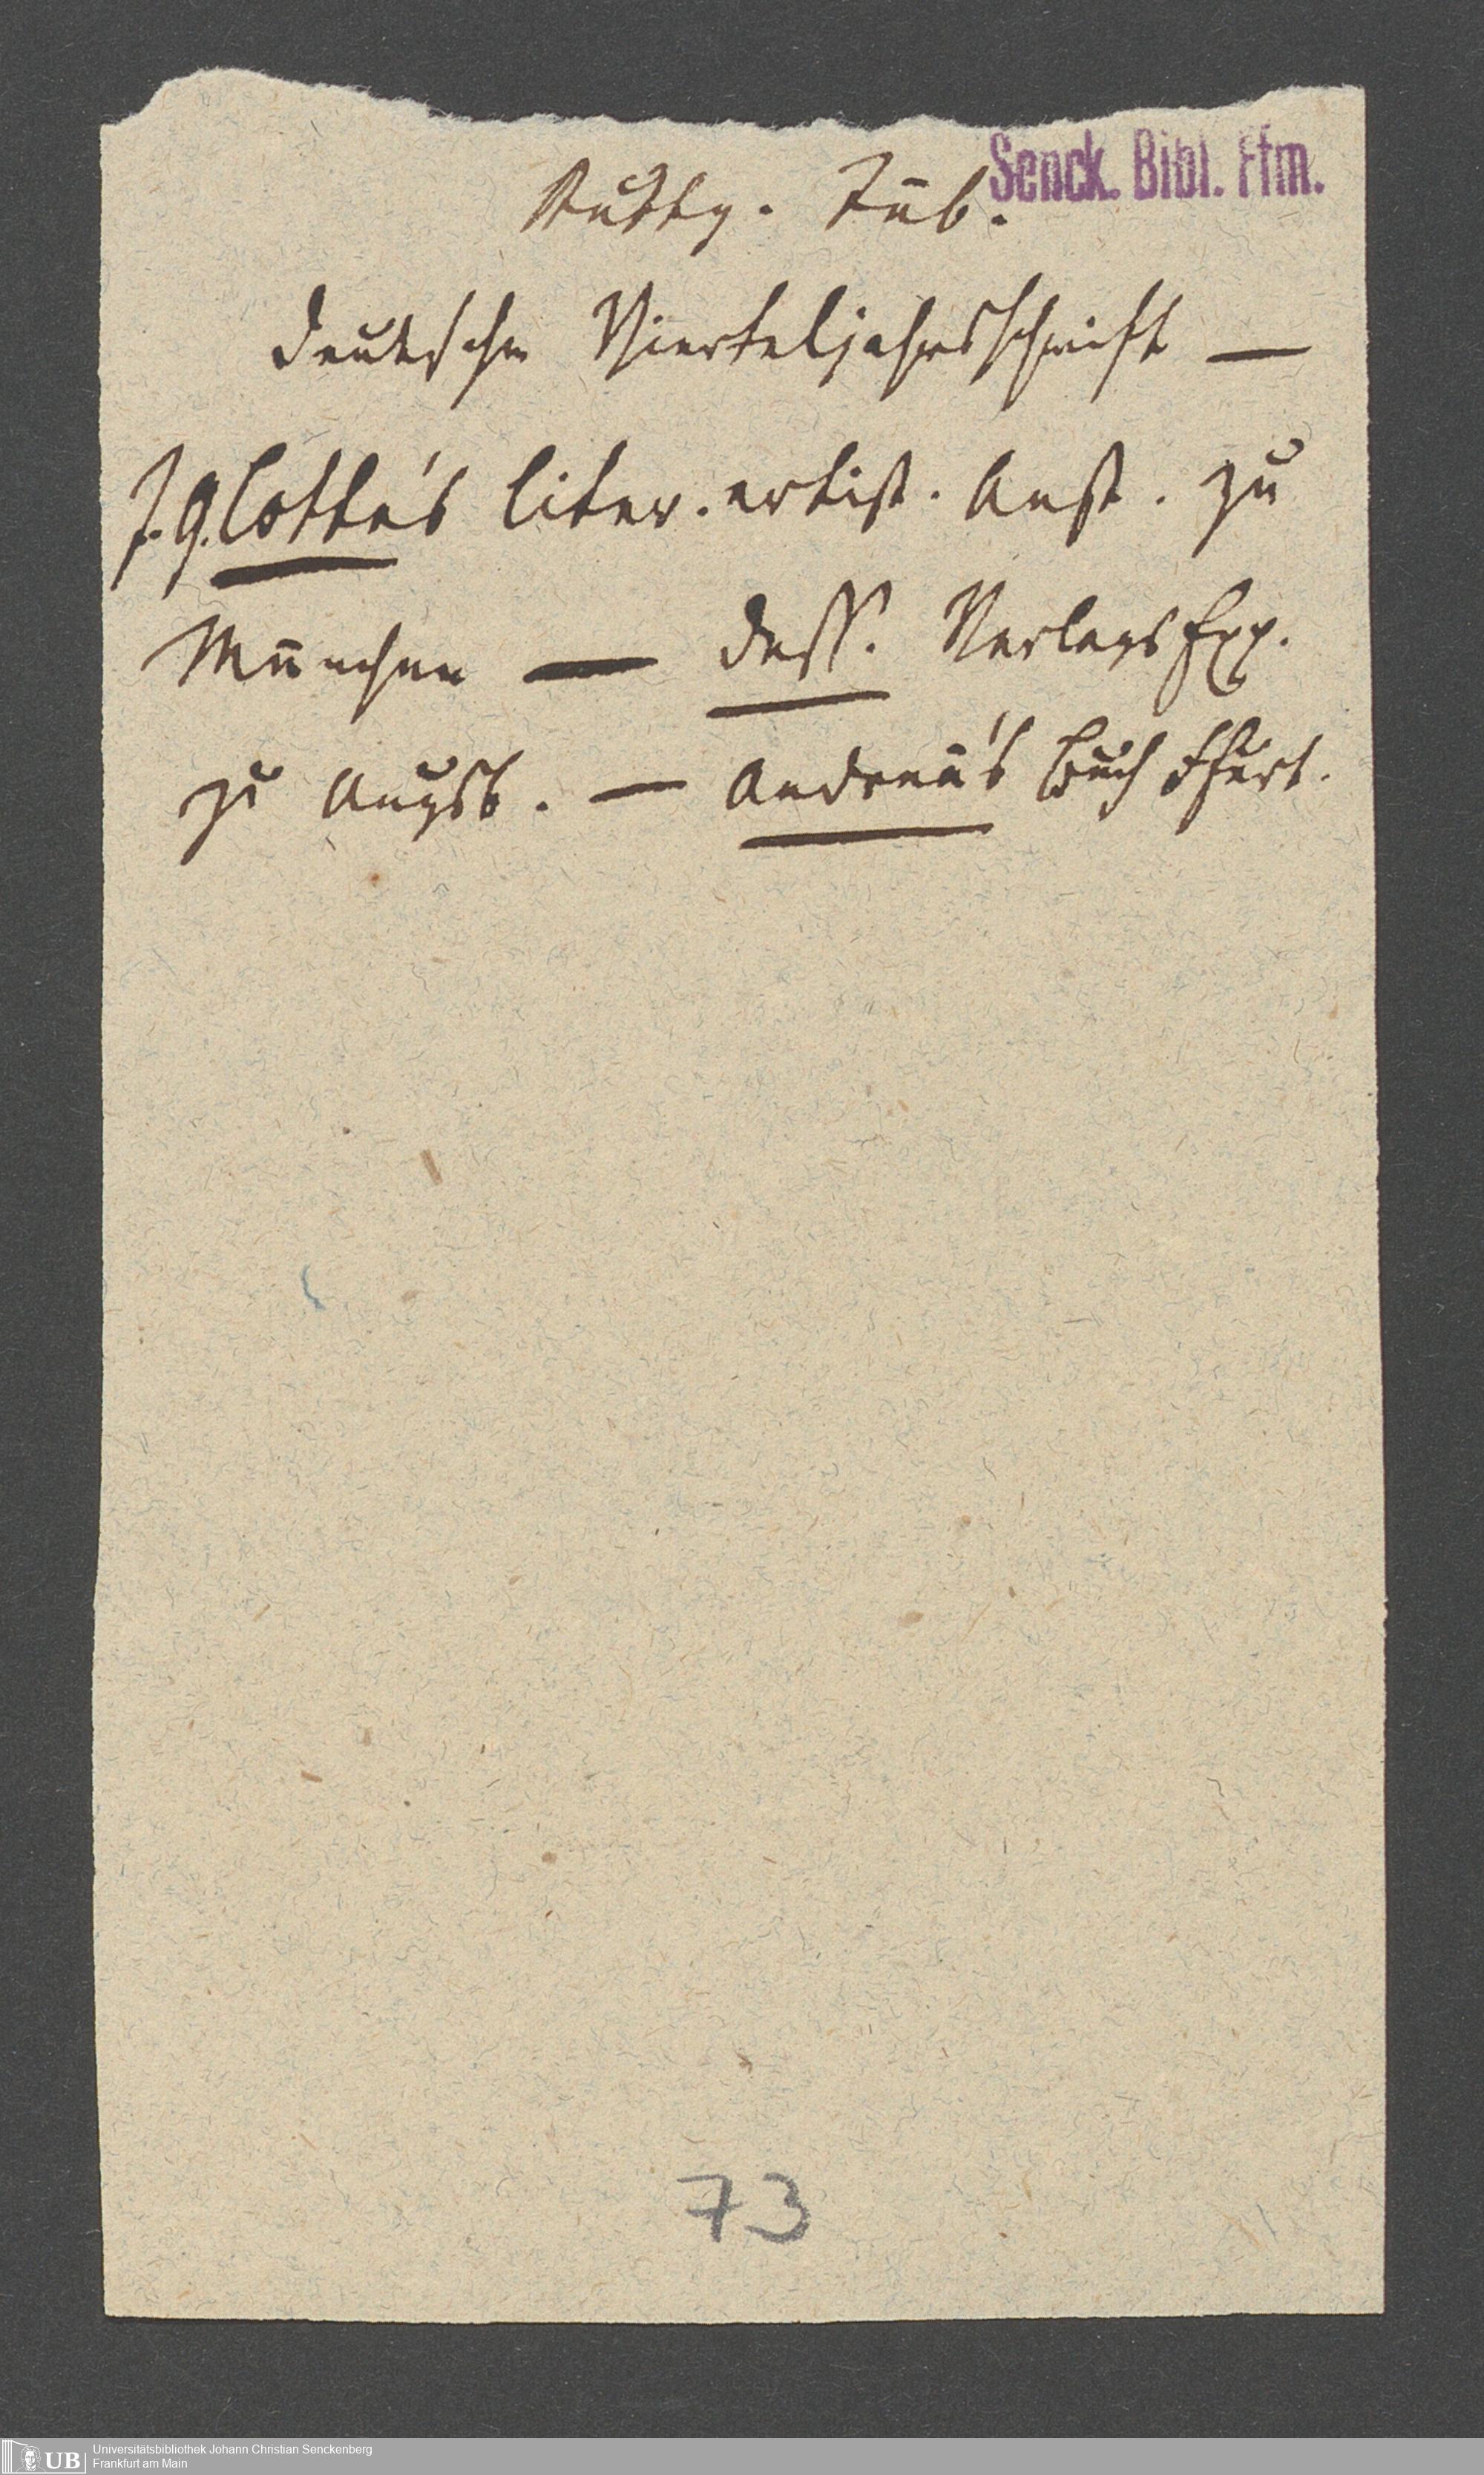 Stuttg. Tüb.
Senck. Bibl. Ffm.
deutsche Vierteljahrsschrift —
J. G. Cotta's liter. artist. Anst. zu
München — dess. Verlags Exp.
zu Augsb. — Andreä's Buch Ffurt.
73
UB
Universitätsbibliothek Johann Christian Senckenberg
Frankfurt am Main